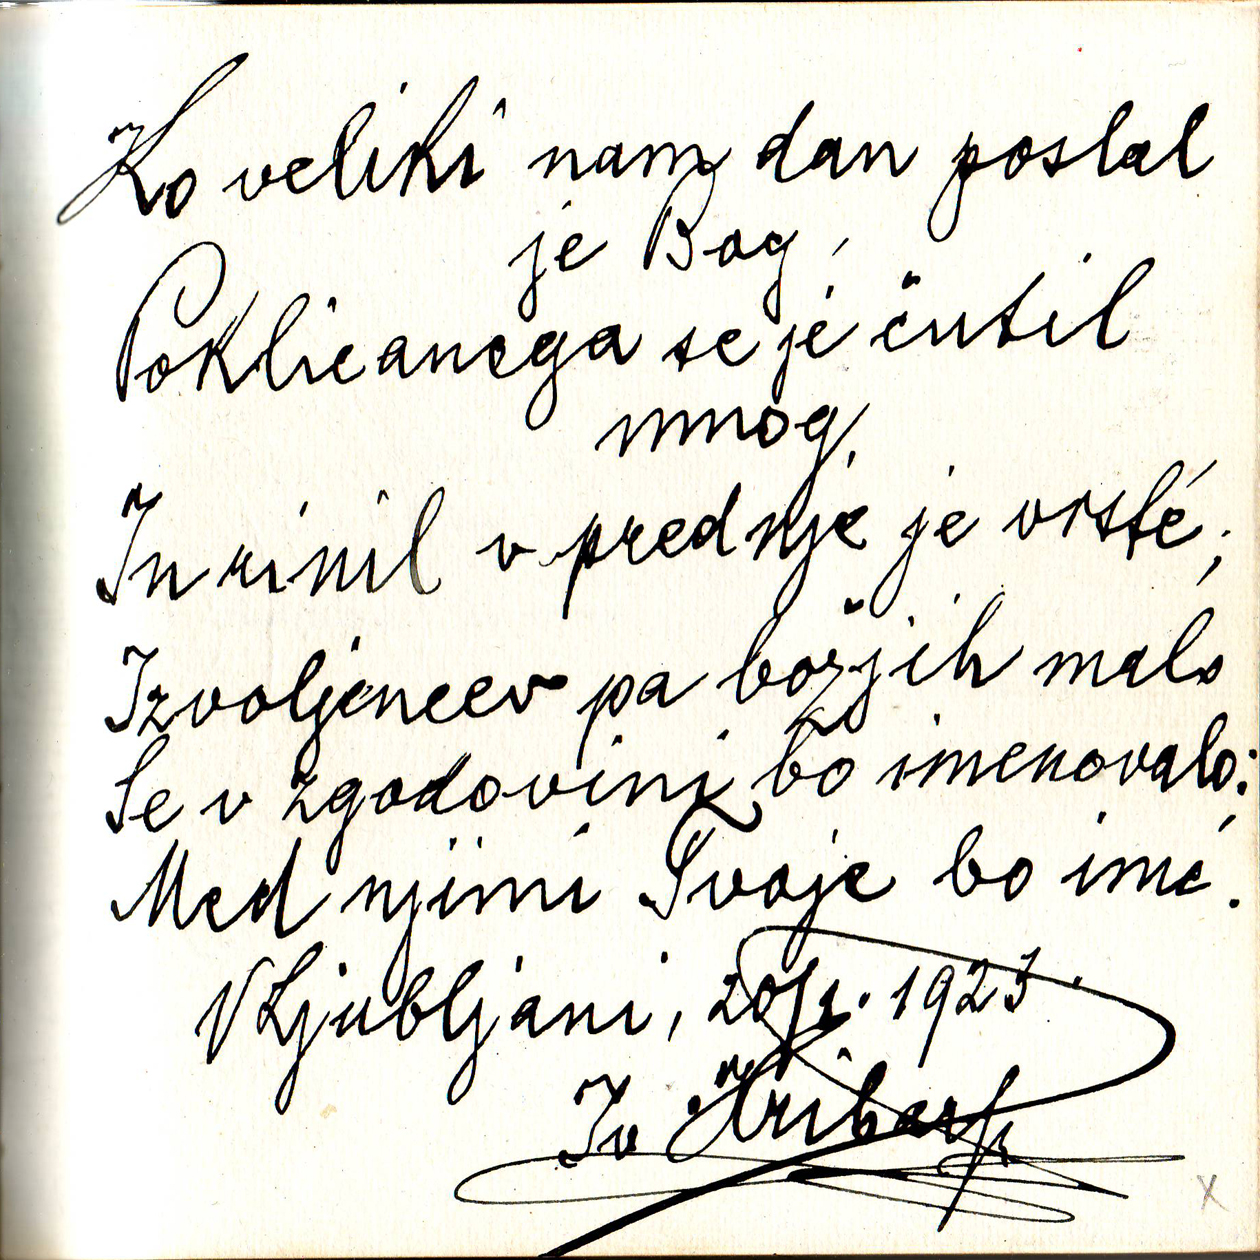 Ko veliki nam dan poslal
je Bog,
Poklicanega se je čutil
mnog,
In rinil v prednje je vrsté;
Izvoljencev pa božjih malo
Se v zgodovini bo imenovalo:
Med njimi Tvoje bo imé.
V Ljubljani, 20/1. 1923.
Iv Hribar
X